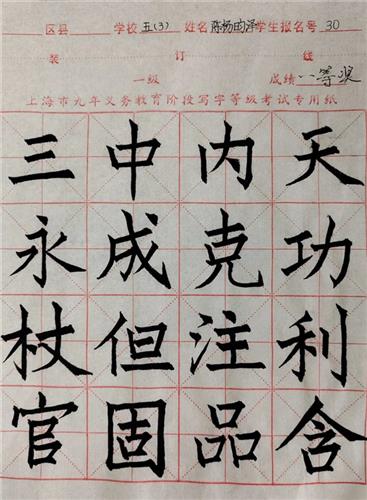 区县 学校 五(3) 姓名 陈杨 泽 学生报名号 30
装 订 线
一级 成绩 一等奖
上海市九年义务教育阶段写字等级考试专用纸
三中内天
永成克功
杖但注利
官固品含